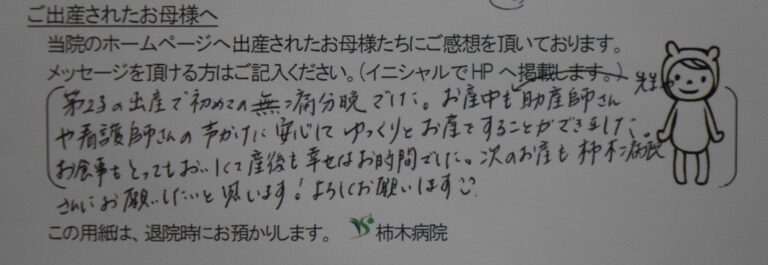 ご出産されたお母様へ
当院のホームページへ出産されたお母様たちにご感想を頂いております。
メッセージを頂ける方はご記入ください。(イニシャルでHPへ掲載します。)
第2子の出産で初めての無痛分娩でした。お産中も先生や助産師さん
や看護師さんの声かけに安心して ゆっくりとお産することができました。
お食事もとってもおいしくて産後も幸せなお時間でした。次のお産も柿木病院
さんにお願いしたいと思います!よろしくお願いします
この用紙は、退院時にお預かりします。 柿木病院